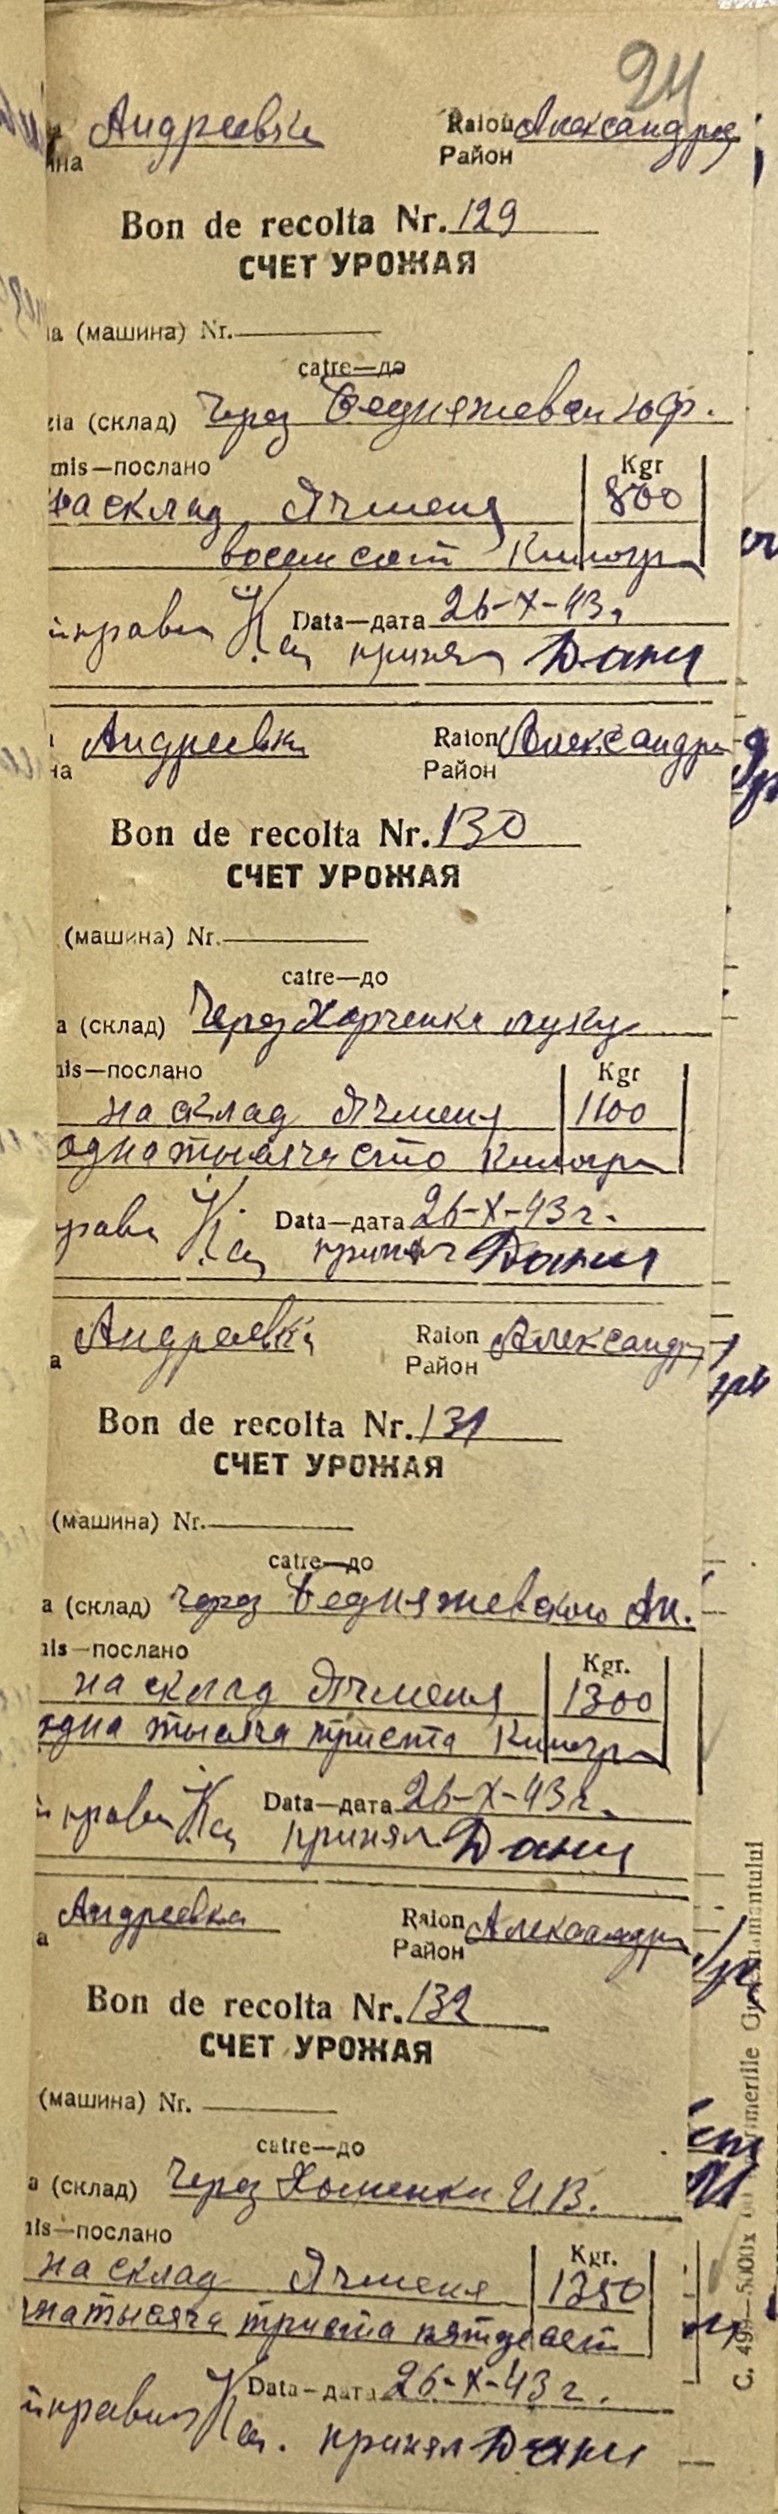 24
Андреевка Raion Александров
на Район
Bon de recolta Nr. 129
СЧЕТ УРОЖАЯ
а (машина) Nr.
catre—до
zia (склад) Через Бедняжеван юф.
mis—послано Kgr
на склад Ячменя 800
восемсот Килогр
Data—дата 26-X-43г
принял Дани
Андреевка Raion Александр
на Район
Bon de recolta Nr. 130
СЧЕТ УРОЖАЯ
(машина) Nr.
catre—до
а (склад) Через Харченка луку
is—послано Kgr
на склад Ячменя 1100
одна тысяча сто Килогр
прави Data—дата 26-X-43г.
принял Дани
Андреевка Raion Александр
а Район
Bon de recolta Nr. 131
СЧЕТ УРОЖАЯ
(машина) Nr.
catre—до
а (склад) через Бедняжевского Ан.
is—послано Kgr.
на склад Ячменя 1300
одна тысяча триста Килогр
прави Data—дата 26-X-43г.
принял Дани
Андреевка Raion Александр
а Район
Bon de recolta Nr. 132
СЧЕТ УРОЖАЯ
(машина) Nr.
catre—до
а (склад) Через Хоменки И В.
is—послано Kgr.
на склад Ячменя 1350
на тысяча триста пятдесят
правил Data—дата 26-X-43г.
принял Дани